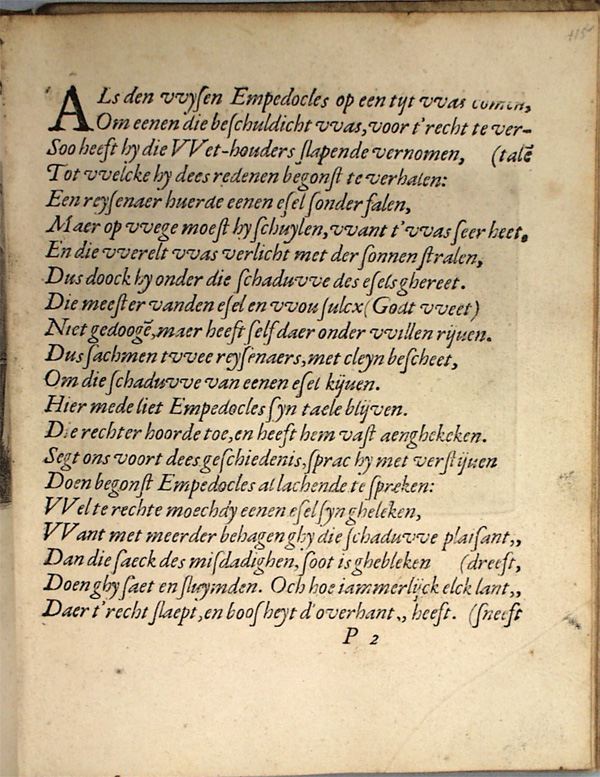 115
ALs den vvysen Empedocles op een tijt vvas comen,
Om eenen die beschuldicht vvas, voor t'recht te ver-
Soo heeft hy die VVet-houders slapende vernomen, (talē
Tot vvelcke hy dees redenen begonst te verhalen:
Een reysenaer huerde eenen esel sonder falen,
Maer op vvege moest hy schuylen, vvant t'vvas seer heet.
En die vverelt vvas verlicht met der sonnen stralen,
Dus doock hy onder die schaduvve des esels ghereet.
Die meester vanden esel en vvou sulcx (Godt vveet)
Niet gedoogē, maer heeft self daer onder vvillen rijuen.
Dus sachmen tvvee reysenaers, met cleyn bescheet,
Om die schaduvve van eenen esel kijuen.
Hier mede liet Empedocles syn taele blijven.
Die rechter hoorde toe, en heeft hem vast aenghekeken.
Segt ons voort dees geschiedenis, sprac hy met verstijuen
Doen begonst Empedocles al lachende te spreken:
VVel te rechte moechdy eenen esel syn gheleken,
VVant met meerder behagen ghy die schaduvve plaisant,,
Dan die saeck des misdadighen, soot is ghebleken (dreeft,
Doen ghy saet en sluymden. Och hoe iammerlijck elck lant,,
Daer t'recht slaept, en boosheyt d'overhant,, heeft. (sneeft
P 2